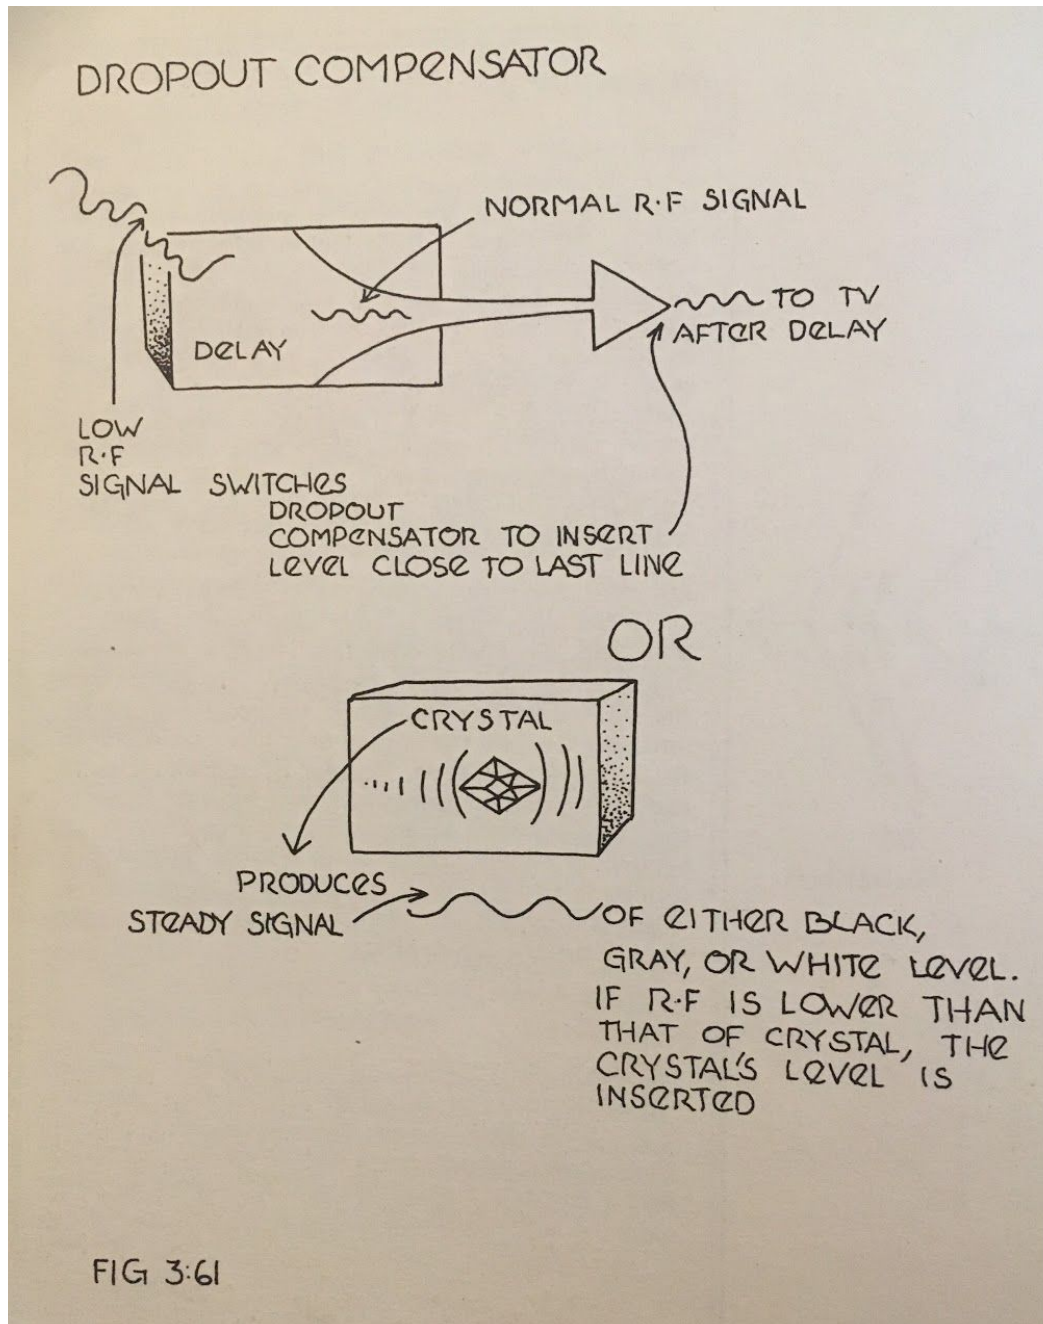 DROPOUT COMPENSATOR
NORMAL R·F SIGNAL
TO TV
AFTER DELAY
DELAY
LOW
R·F
SIGNAL SWITCHES
DROPOUT
COMPENSATOR TO INSERT
LEVEL CLOSE TO LAST LINE
OR
CRYSTAL
PRODUCES
STEADY SIGNAL
OF EITHER BLACK,
GRAY, OR WHITE LEVEL.
IF R·F IS LOWER THAN
THAT OF CRYSTAL, THE
CRYSTAL'S LEVEL IS
INSERTED
FIG 3:61